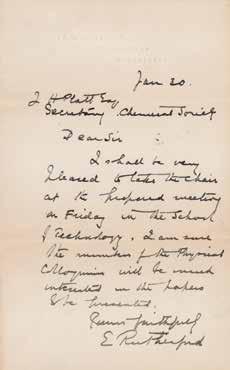 Jan 20.
J H Platt Esq
Secretary. Chemical Society
Dear Sir
I shall be very
pleased to take the chair
at the proposed meeting
on Friday in the School
of Technology. I am sure
the members of the Physical
Colloquium will be much
interested in the papers
to be presented.
Yours faithfully
E Rutherford